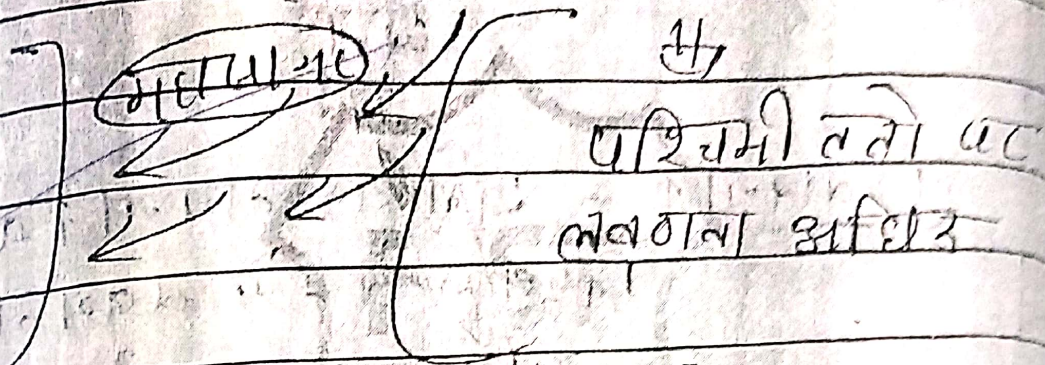 महासागर
पश्चिमी तटो पर
लवणता अधिक